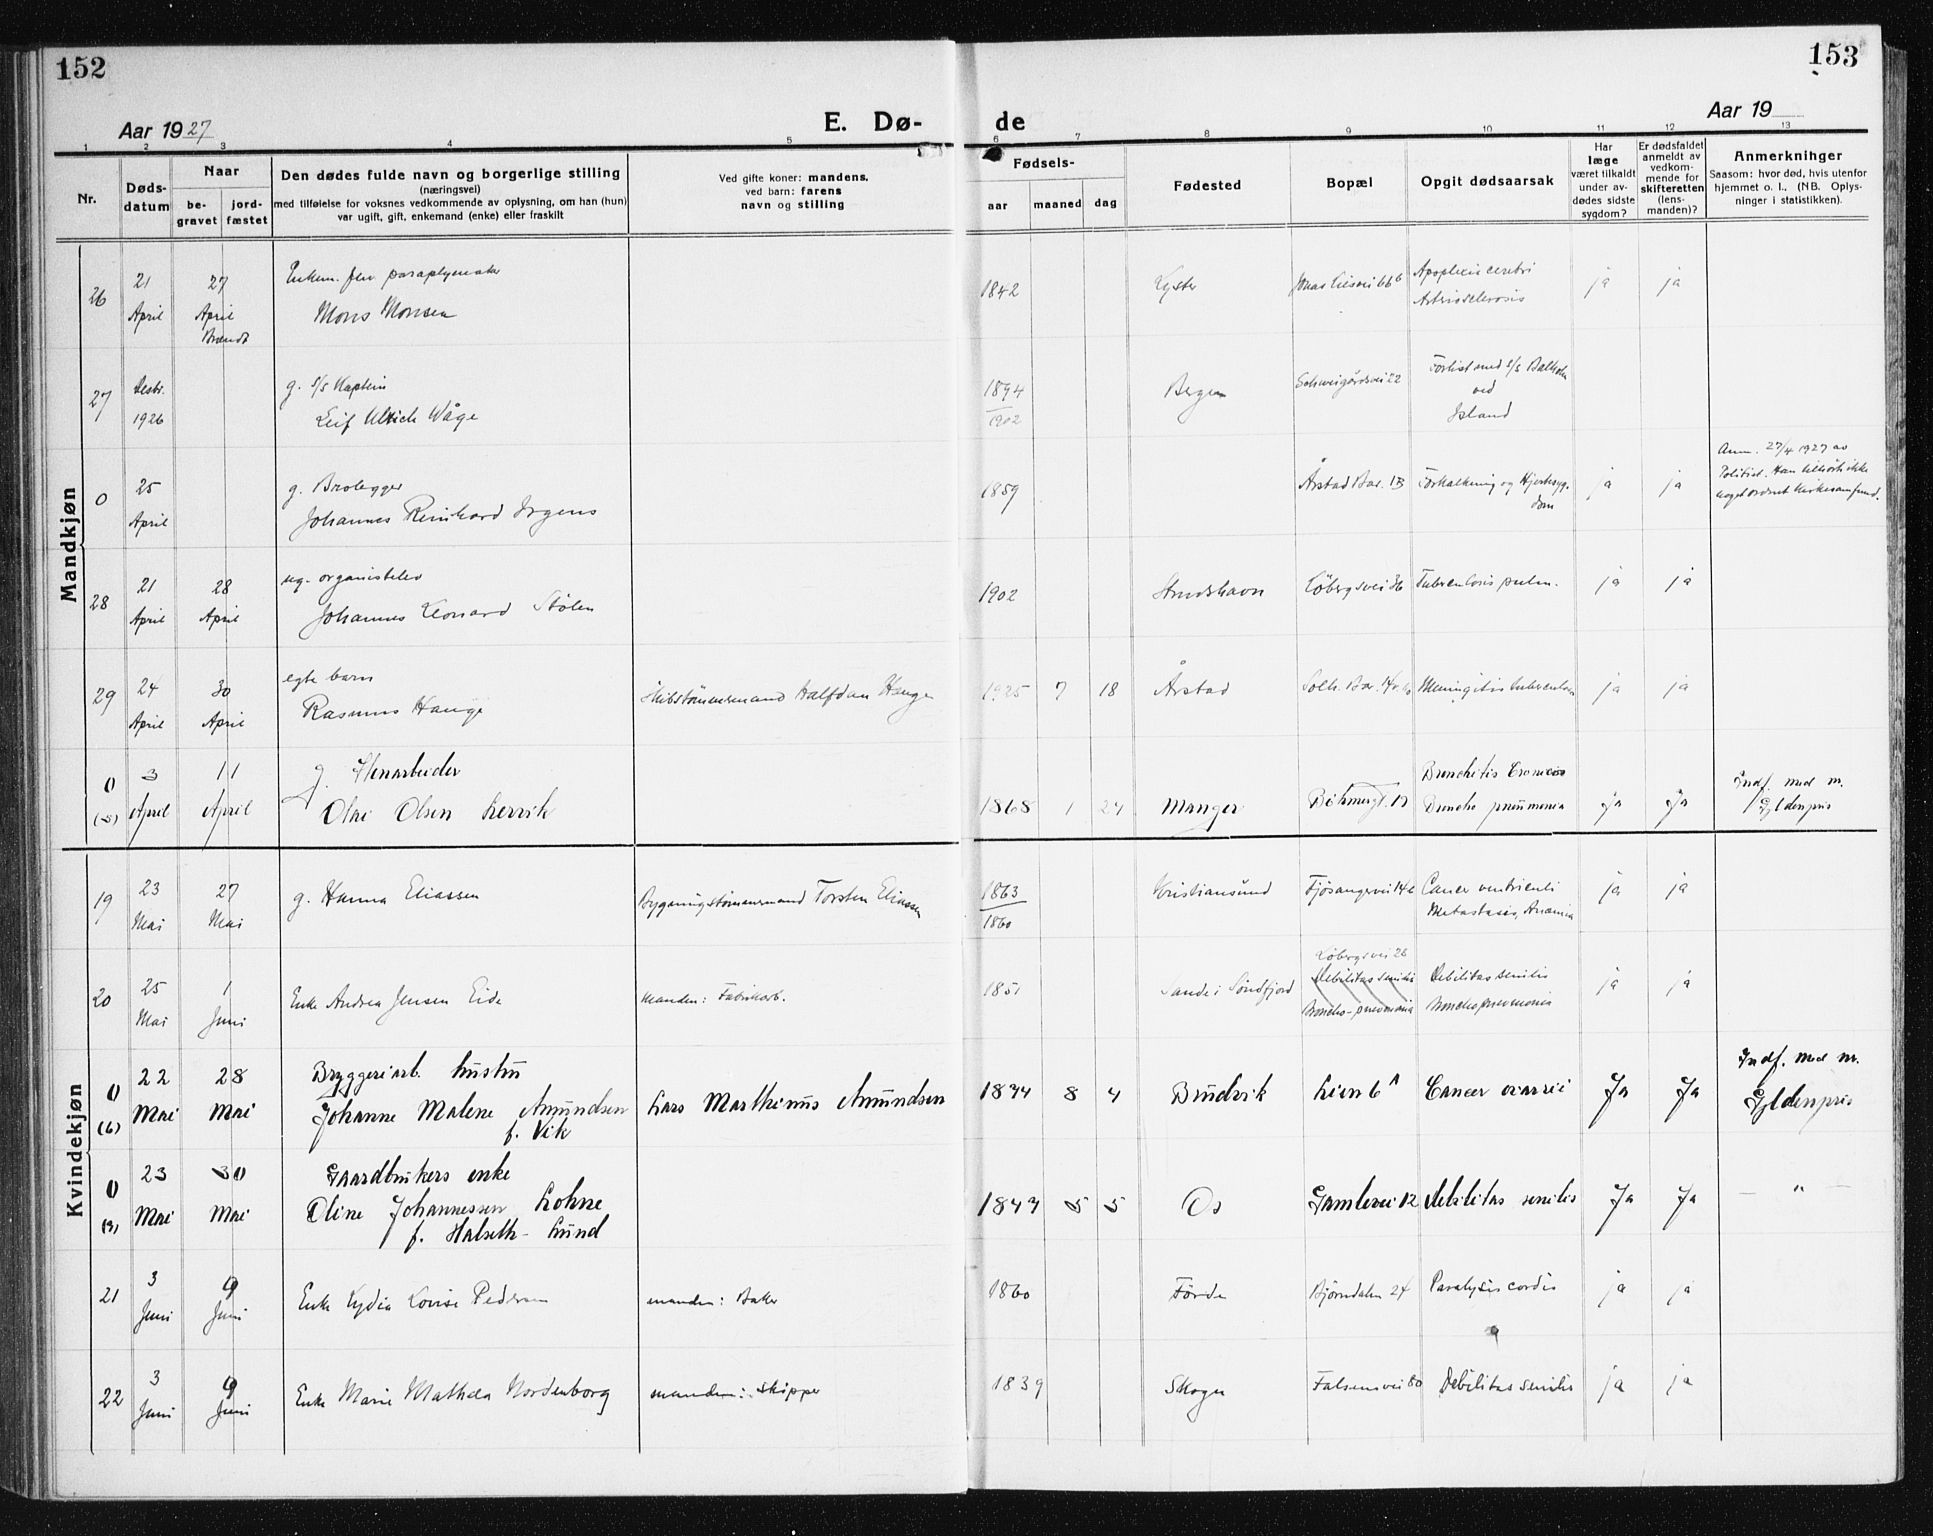 152
153
Aar 1927
E. Dø-
de
Aar 19
1 2 3 4 5 6 7 8 9 10 11 12 13
Nr.
Døds-
datum
Naar
be-
gravet
jord-
fæstet
Den dødes fulde navn og borgerlige stilling
(næringsvei)
med tilføielse for voksnes vedkommende av oplysning, om han (hun)
var ugift, gift, enkemand (enke) eller fraskilt
Ved gifte koner: mandens,
ved barn: farens
navn og stilling
Fødsels-
aar
maaned
dag
Fødested
Bopæl
Opgit dødsaarsak
Har
læge
været tilkaldt
under av-
dødes sidste
sygdom?
Er dødsfaldet
anmeldt av
vedkom-
mende for
skifteretten
(lens-
manden)?
Anmerkninger
Saasom: hvor død, hvis utenfor
hjemmet o. l.. (NB. Oplys-
ninger i statistikken).
Mandkjøn
26
21
April
27
April
Brændt
Enkem. fhv paraplymaker
Mons Monsen
1842
Lyster
Jonas Liesvei 66 b
Apoplexia cerebri
Artriosclerosis
ja
ja
27
Desbr.
1926
g. s/s Kaptein
Leif Ulrich Våge
1894
1902
Bergen
Schweigårdsvei 22
Forlist med s/s Balholm
ved
Island
0
25
April
g. Brolegger
Johannes Reinhard Irgens
1859
Årstad Bar. 1B
Forkalkning og Hjertesyg-
dom
ja
ja
Anm. 27/4 1927 av
Politiet. Han tilhörte ikke
noget ordnet kirkesamfund.
28
21
April
28
April
ug. organistelev
Johannes Leonard Stølen
1902
Strudshavn
Løbergsvei 36
Tuberculosis pulm.
ja
ja
29
24
April
30
April
egte barn
Rasmus Hauge
Skibstömmermand Halfdan Hauge
1925
7
18
Årstad
Solh. Bar.
Meningitis tuberculosa
ja
ja
0
(5)
3
April
11
April
g. Stenarbeider
Olai Olsen Lervik
1868
1
27
Manger
Böhmergt. 19
Bronchitis Cronica
Broncho pneumonia
Ja
Ja
Indf. med m.
Gyldenpris
Kvindekjøn
19
23
Mai
27
Mai
g. Hanna Eliassen
Bygningstömmermand Torsten Eliassen
1863
1860
Kristiansund
Fjösangervei 14b
Cancer ventriculi
Metastasis, Anæmia
ja
ja
20
25
Mai
1
Juni
Enke Andrea Jensen Eide
Manden: Fabrikarb.
1851
Sande i Söndfjord
Løbergsvei 26
Debilitas senilis
Broncho-pneumonia
Debilitas senilis
Bronchopneumonia
ja
ja
0
(6)
22
Mai
28
Mai
Bryggeriarb. hustru
Johanne Malene Amundsen
f. Vik
Lars Marthinus Amundsen
1874
8
4
Brudvik
Lien 6 A
Cancer ovarii
Ja
Ja
Indf. med m.
Gyldenpris
0
(9)
23
Mai
30
Mai
Gaardbrukers enke
Oline Johannessen Lohne
f. Halseth-Lund
1847
5
5
Os
Gamlevei 12
Debilitas senilis
Ja
Ja
— " —
21
3
Juni
9
Juni
Enke Lydia Lovise Pedersen
manden: Baker
1860
Förde
Björndalen 24
Paralysis cordis
ja
ja
22
3
Juni
9
Juni
Enke Marie Mathea Nordenborg
manden: skipper
1839
Skogn
Falsensvei 80
Debilitas senilis
ja
ja